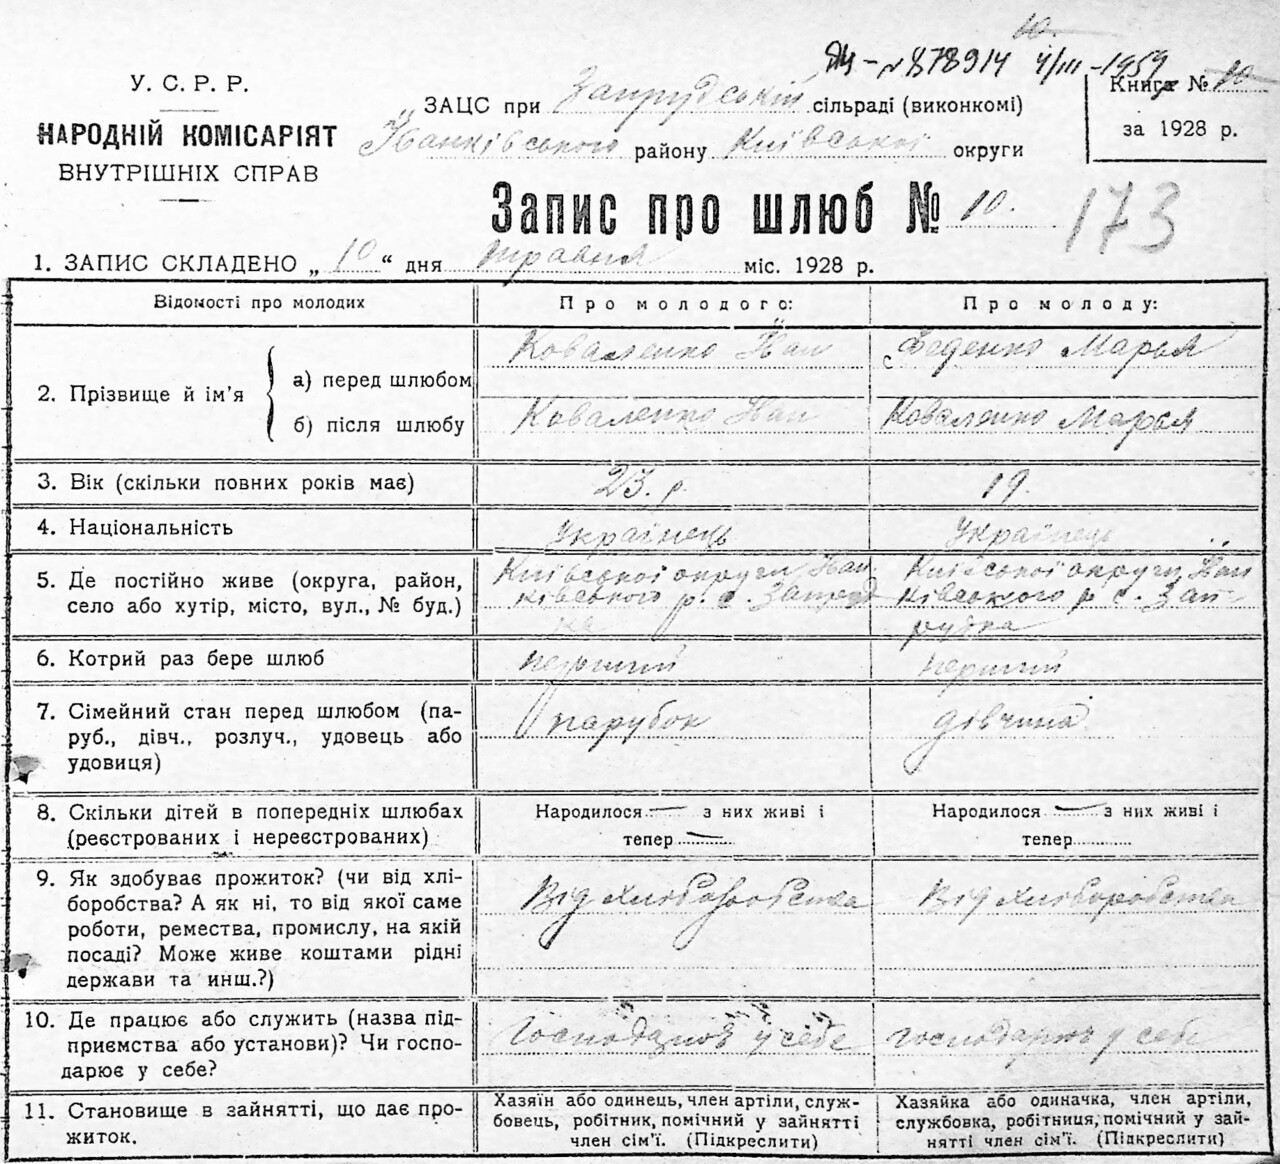 10.
ЯЦ-№878914 4/III-1959
У. С. Р. Р.
НАРОДНІЙ КОМІСАРІЯТ
ВНУТРІШНІХ СПРАВ
ЗАЦС при Запрудській сільраді (виконкомі)
Іванківського району Київської округи
Книга № 10
за 1928 р.
Запис про шлюб № 10.
173
1. ЗАПИС СКЛАДЕНО „ 10 “ дня травня міс. 1928 р.
Відомості про молодих
Про молодого:
Про молоду:
2. Прізвище й ім’я
а) перед шлюбом
Коваленко Іван
Феденко Марья
б) після шлюбу
Коваленко Іван
Коваленко Марья
3. Вік (скільки повних років має)
23. р.
19.
4. Національність
Українець
Українець
5. Де постійно живе (округа, район,
село або хутір, місто, вул., № буд.)
Київської округи Іван
ківського р. с. Запруд
ка
Київської округи Іван
ківського р с. Зап-
рудка
6. Котрий раз бере шлюб
перший
перший
7. Сімейний стан перед шлюбом (па-
руб., дівч., розлуч., удовець або
удовиця)
парубок
дівчина
8. Скільки дітей в попередніх шлюбах
(реєстрованих і нереєстрованих)
Народилося — з них живі і
тепер —
Народилося — з них живі і
тепер
9. Як здобуває прожиток? (чи від хлі-
боробства? А як ні, то від якої саме
роботи, ремества, промислу, на якій
посаді? Може живе коштами рідні
держави та инш.?)
Від хліборобства
Від хліборобства
10. Де працює або служить (назва під-
приємства або установи)? Чи госпо-
дарює у себе?
Господарює у себе
господарює у себе
11. Становище в зайнятті, що дає про-
житок.
Хазяїн або одинець, член артіли, служ-
бовець, робітник, помічний у зайнятті
член сім’ї. (Підкреслити)
Хазяйка або одиначка, член артіли,
службовка, робітниця, помічний у зай-
нятті член сім’ї. (Підкреслити)